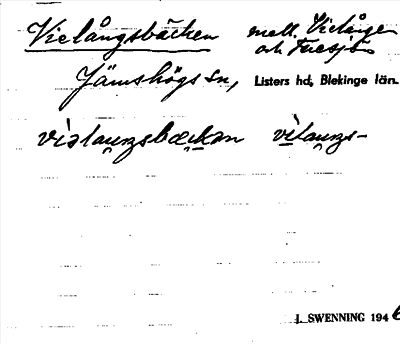 Vielångsbäcken mell. Vielången
och Furesjön
Jämshögs sn, Listers hd, Blekinge län.
vielaŋgsbæckan vitaŋgs-
J. SWENNING 1946